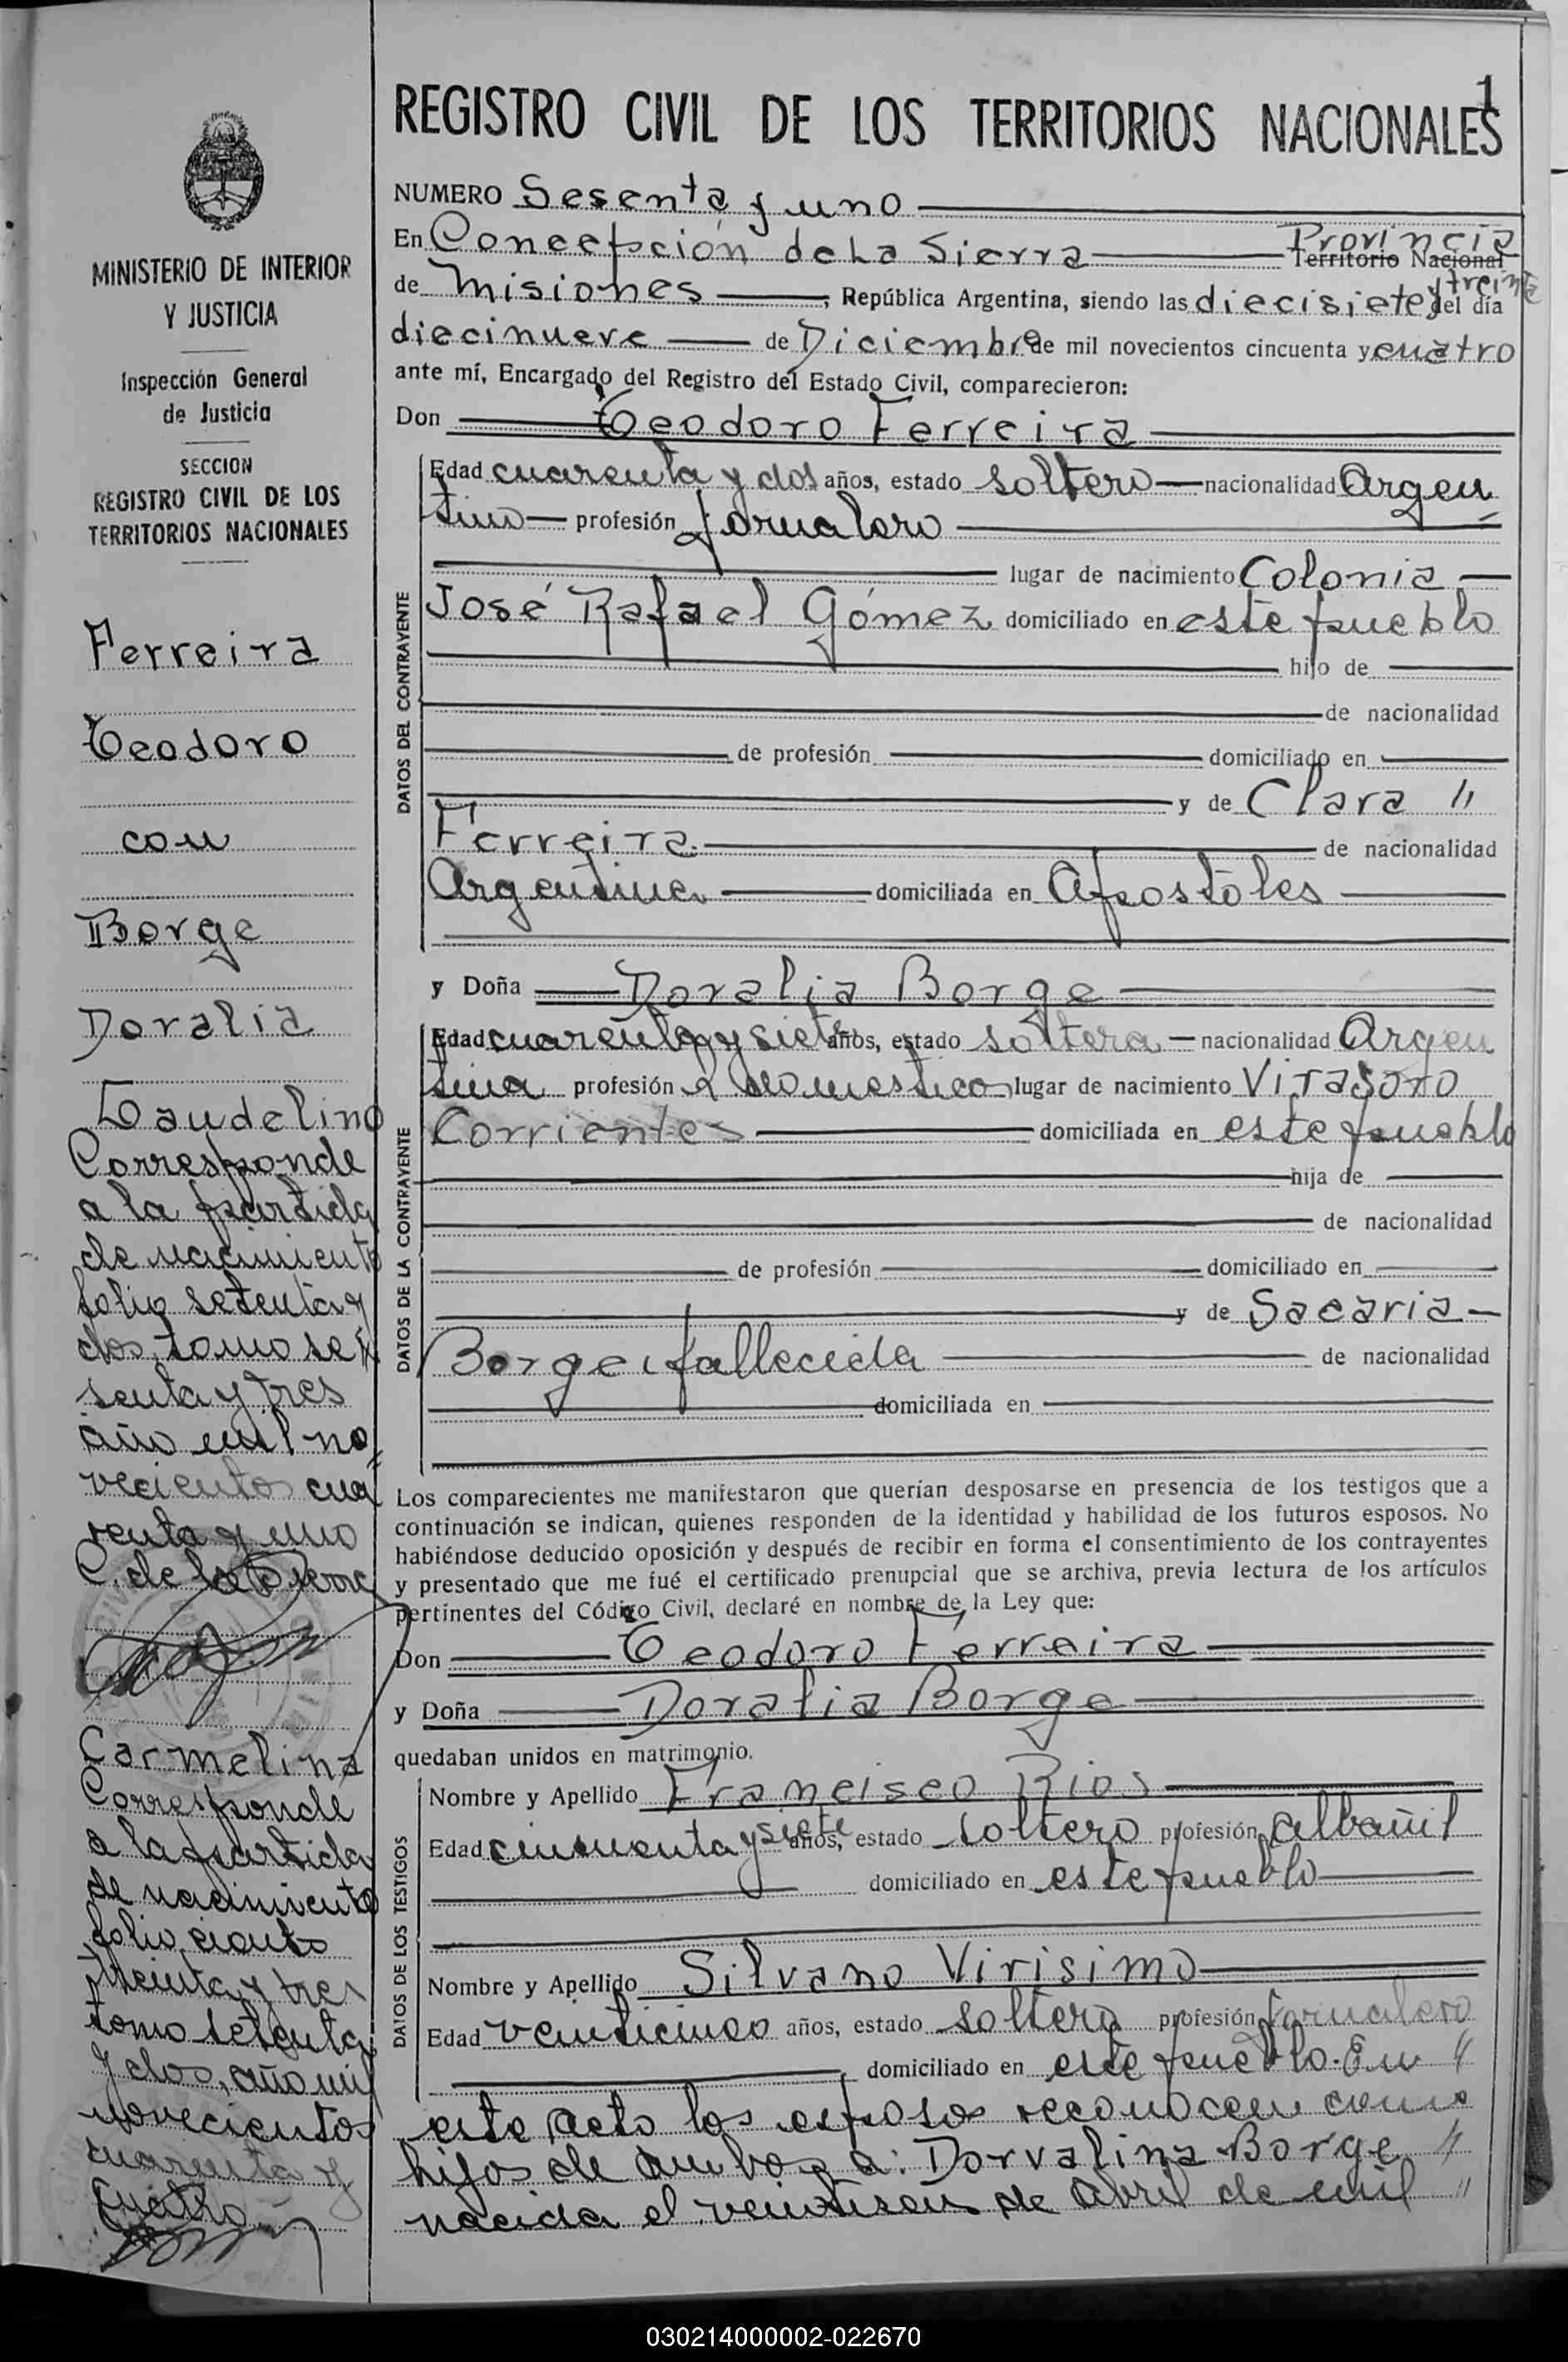 1
REGISTRO CIVIL DE LOS TERRITORIOS NACIONALES
MINISTERIO DE INTERIOR
Y JUSTICIA
Inspección General
de Justicia
SECCION
REGISTRO CIVIL DE LOS
TERRITORIOS NACIONALES
Ferreira
Teodoro
con
Borge
Doralia
Laudelino
Corresponde
a la partida
de nacimiento
folio setenta y
dos, tomo se"
senta y tres
año mil no"
vecientos cua
renta y uno
C. de la Sierra
Carmelina
Corresponde
a la partida
de nacimiento
folio ciento
treinta y tres
tomo setenta
y dos, año mil
novecientos
cuarenta y
cuatro
NUMERO Sesenta y uno
En Concepción de La Sierra Provincia Territorio Nacional
de Misiones, República Argentina, siendo las diecisiete y treinta del día
diecinueve de Diciembre de mil novecientos cincuenta y cuatro
ante mí, Encargado del Registro del Estado Civil, comparecieron:
Don Teodoro Ferreira
DATOS DEL CONTRAYENTE
Edad cuarenta y dos años, estado soltero nacionalidad Argen
tino profesión jornalero
lugar de nacimiento Colonia
José Rafael Gómez domiciliado en este pueblo
hijo de
de nacionalidad
de profesión domiciliado en
y de Clara "
Ferreira de nacionalidad
Argentina domiciliada en Apostoles
y Doña Doralia Borge
DATOS DE LA CONTRAYENTE
Edad cuarenta y siete años, estado soltera nacionalidad Argen
tina profesión domestico lugar de nacimiento Virasoro
Corrientes domiciliada en este pueblo
hija de
de nacionalidad
de profesión domiciliado en
y de Sacaria
Borge fallecida de nacionalidad
domiciliada en
Los comparecientes me manifestaron que querían desposarse en presencia de los testigos que a
continuación se indican, quienes responden de la identidad y habilidad de los futuros esposos. No
habiéndose deducido oposición y después de recibir en forma el consentimiento de los contrayentes
y presentado que me fué el certificado prenupcial que se archiva, previa lectura de los artículos
pertinentes del Código Civil, declaré en nombre de la Ley que:
Don Teodoro Ferreira
y Doña Doralia Borge
quedaban unidos en matrimonio.
DATOS DE LOS TESTIGOS
Nombre y Apellido Francisco Rios
Edad cincuenta y siete años, estado soltero profesión albañil
domiciliado en este pueblo
Nombre y Apellido Silvano Virisimo
Edad veinticinco años, estado soltero profesión jornalero
domiciliado en este pueblo. En "
este acto los esposos reconocen como
hijos de ambos a: Dorvalina Borge "
nacida el veintiseis de Abril de mil "
030214000002-022670